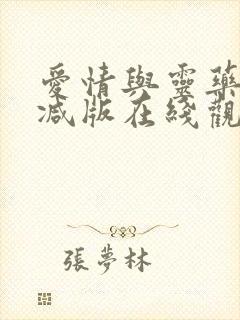 愛情與靈藥
减版在綫觀
張夢林